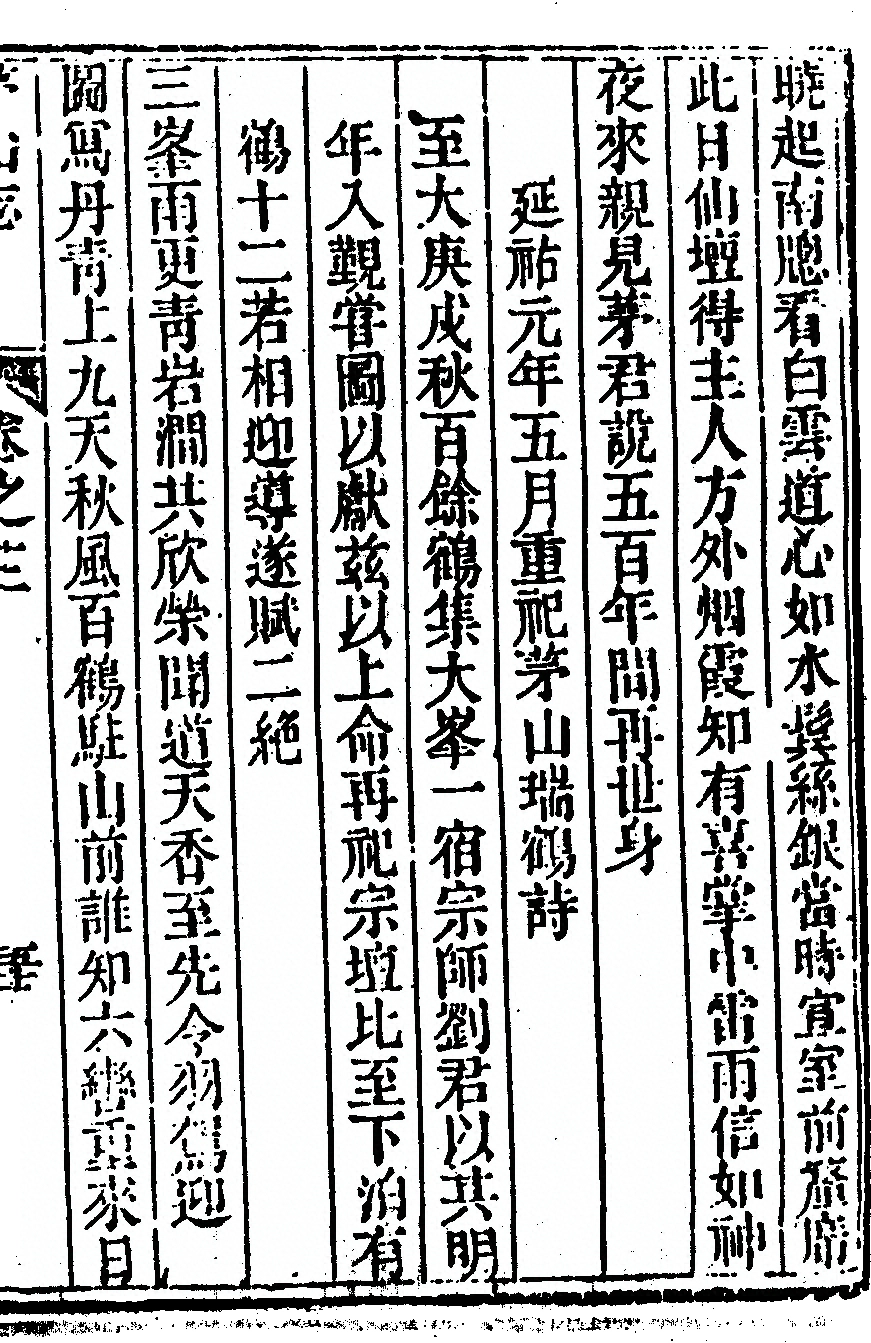 曉起南牕看白雲道心如水鬂絲銀當時宣室前釐席
此日仙壇得主人方外烟霞知有喜掌中雷雨信如神
夜來親見茅君說五百年間再世身
延祐元年五月重祀茅山瑞鶴詩
至大庚戌秋百餘鶴集大峯一宿宗師劉君以其明
年入覲甞圖以獻茲以上命再祀宗壇比至下泊有
鶴十二若相迎導遂賦二絶
三峯雨更青岩澗共欣榮聞道天香至先令羽駕迎
圖寫丹青上九天秋風百鶴駐山前誰知六轡重來日
茅山志 卷之三